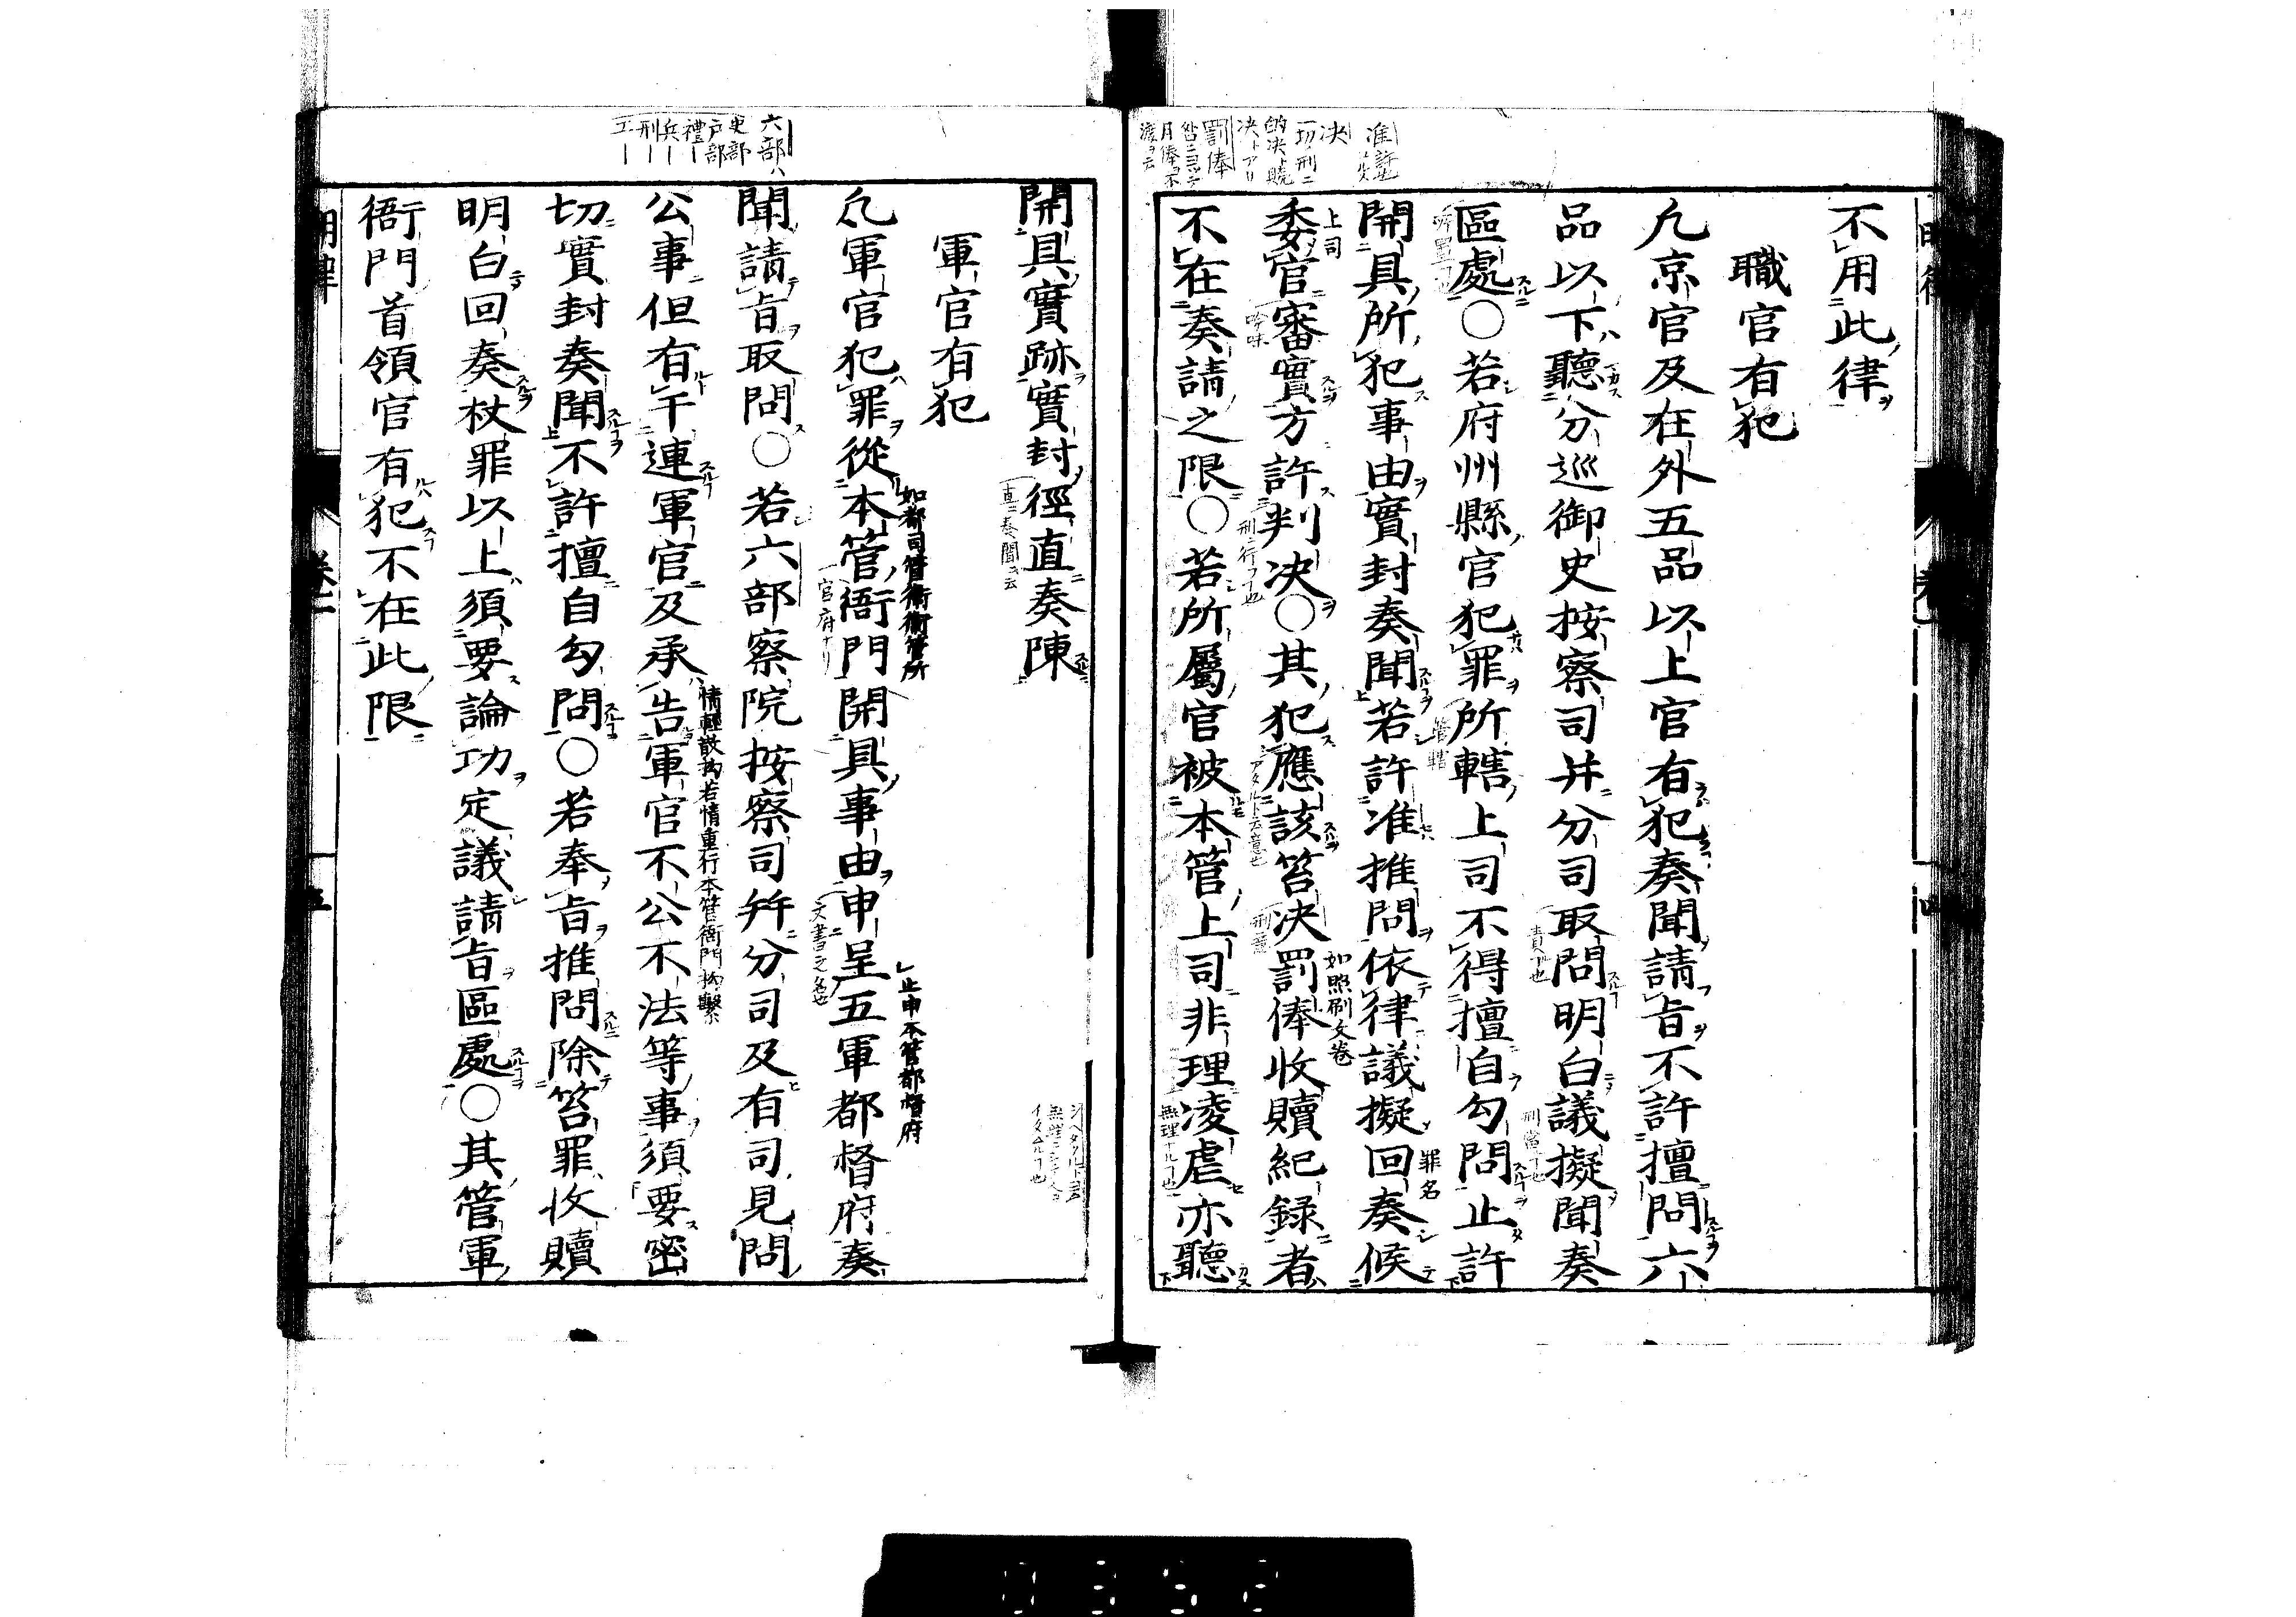 不用此律
職官有犯
凡京官及在外五品以上官有犯奏聞請旨不許擅問六
品以下聽分巡御史按察司并分司取問明白議擬聞奏
區處○若府州縣官犯罪所轄上司不得擅自勾問止許
開具所犯事由實封奏聞若許准推問依律議擬回奏候
委官審實方許判决○其犯應該笞决罰俸收贖紀録者
不在奏請之限○若所屬官被本管上司非理凌虐亦聽
上司
罪名
如照刷文卷
開具實跡實封徑直奏陳
軍官有犯
凡軍官犯罪從本管衙門開具事由申呈五軍都督府奏
如都司管衛衛管所
止申本管都督府
聞請旨取問○若六部察院按察司幷分司及有司見問
公事但有干連軍官及承告軍官不公不法等事須要密
情輕散拘若情重行本管衙門拘繫
切實封奏聞不許擅自勾問○若奉旨推問除笞罪收贖
明白回奏杖罪以上須要論功定議請旨區處○其管軍
衙門首領官有犯不在此限
六部ハ
吏部
戸部
禮｜
兵｜
刑｜
工｜